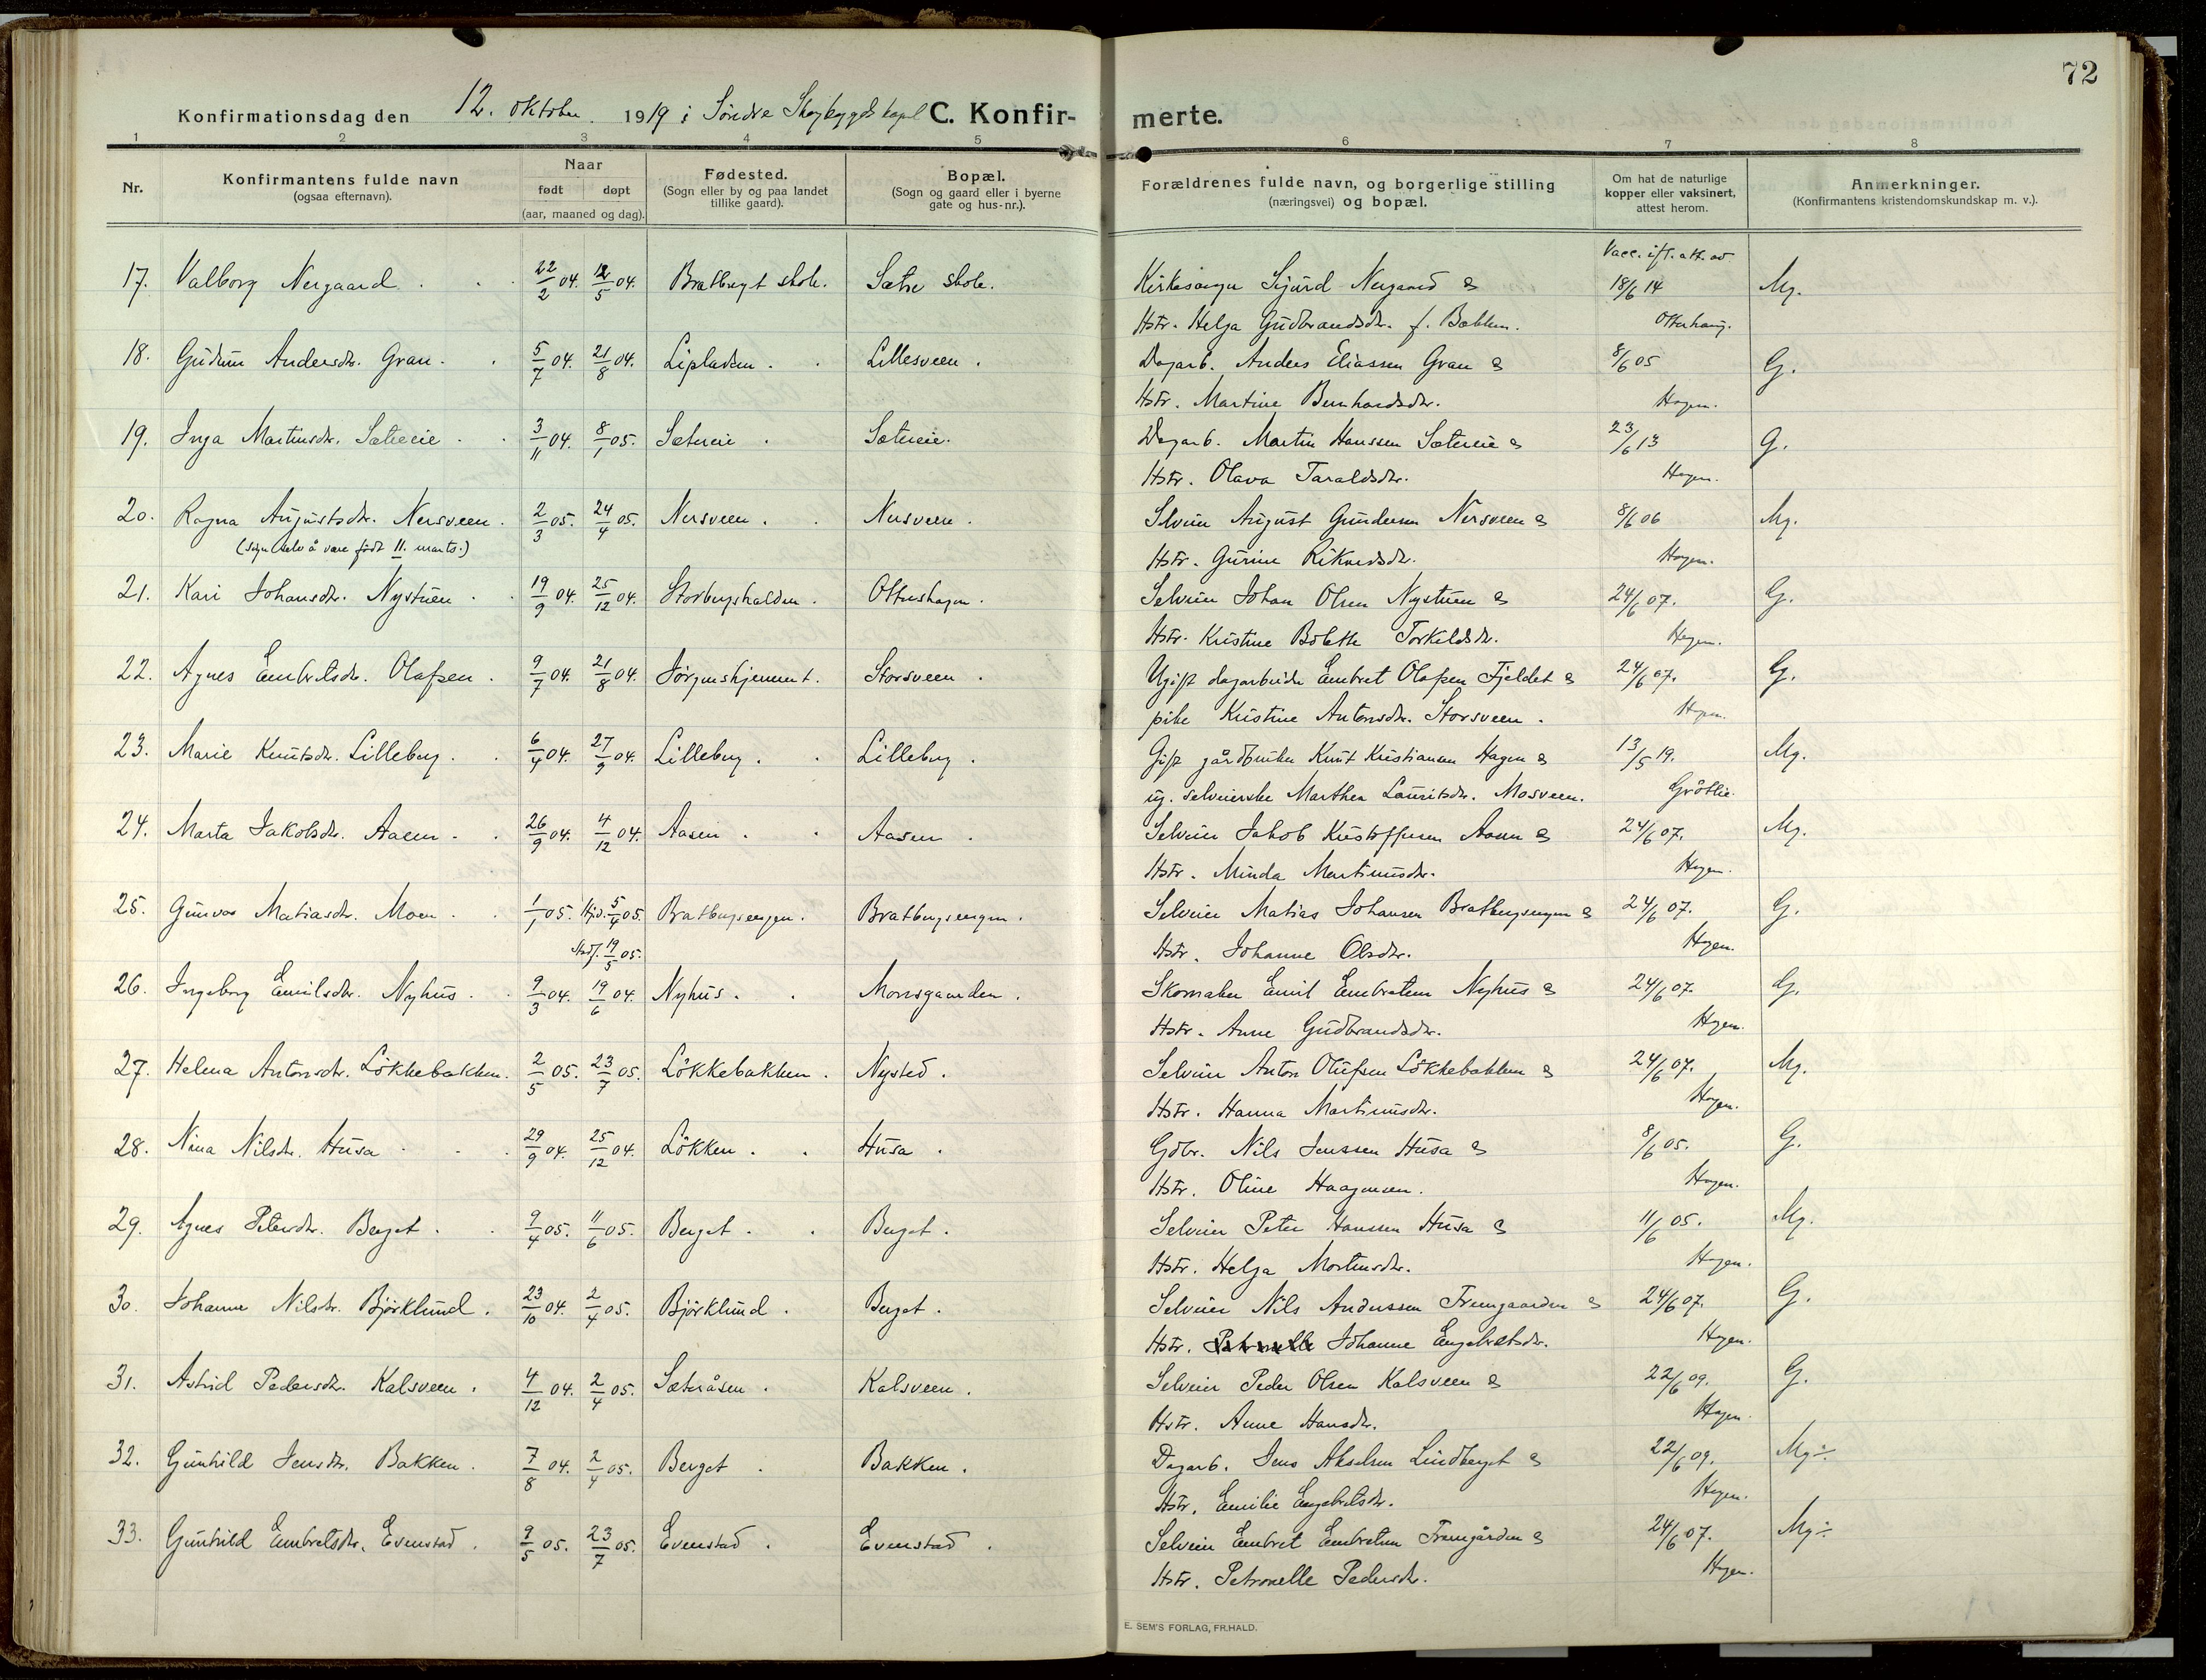 72
Konfirmationsdag den 12. oktober 1919 i Søndre Skogbygds kapel C. Konfirmerte.
1 2 3 4 5 6 7 8
Nr.
Konfirmantens fulde navn
(ogsaa efternavn).
Naar
født døpt
(aar, maaned og dag).
Fødested.
(Sogn eller by og paa landet
tillike gaard).
Bopæl.
(Sogn og gaard eller i byerne
gate og hus-nr.).
Forældrenes fulde navn, og borgerlige stilling
(næringsvei) og bopæl.
Om hat de naturlige
kopper eller vaksinert,
attest herom.
Anmerkninger.
(Konfirmantens kristendomskundskap m. v.).
Vacc. ifl. att. av
17. Valborg Nergaard 22/2 04. 12/5 04. skole. Sætre skole. Kirkesanger Sigurd Nergaard & 18/6 14 Mg.
Hstr. Helga Gudbrandsdr. f. Bakken.
18. Gudrun Andersdr. Gran. 5/7 04. 21/8 04. Lipladsen. Lillesveen. Dagarb. Anders Eliassen Gran & 8/6 05 G.
Hstr. Martine Bernhardsdr. Hagen.
19. Inga Martinsdr. Sætereie 3/11 04. 8/1 05. Sætereie. Sætereie. Dagarb. Martin Hanssen Sætereie & 23/6 13 G.
Hstr. Olava Taraldsdr. Hagen.
20. Ragna Augustsdr. Nersveen. 2/3 05. 24/4 05. Nersveen. Nersveen. Selveier August Gundersen Nersveen & 8/6 06 Mg.
(siger selv å være født 11. marts.) Hstr. Gurine Hagen.
21. Kari Johansdr. Nystuen. 19/9 04. 25/12 04. Storbergshalden. Ottershagen. Selveier Johan Olsen Nystuen & 24/6 07. G.
Hstr. Kristine Bolette Torkildsdr. Hagen.
22. Agnes Embretsdr. Olafsen. 9/7 04. 21/8 04. Jørgenshjemmet. Storsveen. Ugift dagarbeider Embret Olafsen Fjeldet & 24/6 07. G.
pike Kristine Antonsdr. Storsveen. Hagen.
23. Marie Knutsdr. Lilleberg. 6/4 04. 27/9 04. Lilleberg. Lilleberg. Gift gårdbruker Knut Kristiansen Hagen & 13/5 19. Mg.
ug. selveierske Marthea Lauritsdr. Mosveen. Grøtlie.
24. Marta Jakobsdr. Aasen. 26/9 04. 4/12 04. Aasen. Aasen. Selveier Jakob Kristoffersen Aasen & 24/6 07. Mg.
Hstr. Minda Martinusdr. Hagen.
25. Gunvor Matiasdr. Moen. 1/1 05. Hjd. 5/4 05. Bratbergsengen. Bratbergsengen. Selveier Matias Johansen Bratbergsengen & 24/6 07. G.
Stadf. 19/5 05. Hstr. Johanne Olsdr. Hagen.
26. Ingeborg Emilsdr. Nyhus. 9/3 04. 19/6 04. Nyhus. Monsgaarden. Skomaker Emil Embretsen Nyhus & 24/6 07. G.
Hstr. Anne Gudbrandsdr. Hagen.
27. Helena Antonsdr. Løkkebakken. 2/5 05. 23/7 05. Løkkebakken. Nysted. Selveier Anton Olufsen Løkkebakken & 24/6 07. Mg.
Hstr. Hanna Martinusdr. Hagen.
28. Nina Nilsdr. Husa. 29/9 04. 25/12 04. Løkken. Husa. Gdbr. Nils Jenssen Husa & 8/6 05. G.
Hstr. Oline Haagensen. Hagen.
29. Agnes Petersdr. Berget. 9/4 05. 11/6 05. Berget. Berget. Selveier Peter Hanssen Husa & 11/6 05. Mg.
Hstr. Helga Mortensdr. Hagen.
30. Johanne Nilsdr. Bjørklund. 23/10 04. 2/4 05. Bjørklund. Berget. Selveier Nils Anderssen Fremgaarden & 24/6 07. G.
Hstr. Petronelle Johanne Engebretsdr. Hagen.
31. Astrid Pedersdr. Kalsveen. 4/12 04. 2/4 05. Sæteråsen. Kalsveen. Selveier Peder Olsen Kalsveen & 22/6 09. G.
Hstr. Anne Hansdr. Hagen.
32. Gunhild Jensdr. Bakken. 7/8 04. 2/4 05. Berget. Bakken. Dagarb. Jens Akselsen Lindberget & 22/6 09. Mg÷.
Hstr. Emilie Engebretsdr. Hagen.
33. Gunhild Embretsdr. Evenstad. 9/5 05. 23/7 05. Evenstad. Evenstad. Selveier Embret Embretsen Fremgården & 24/6 07. Mg÷
Hstr. Petronelle Pedersdr. Hagen.
E. SEM'S FORLAG, FR.HALD.